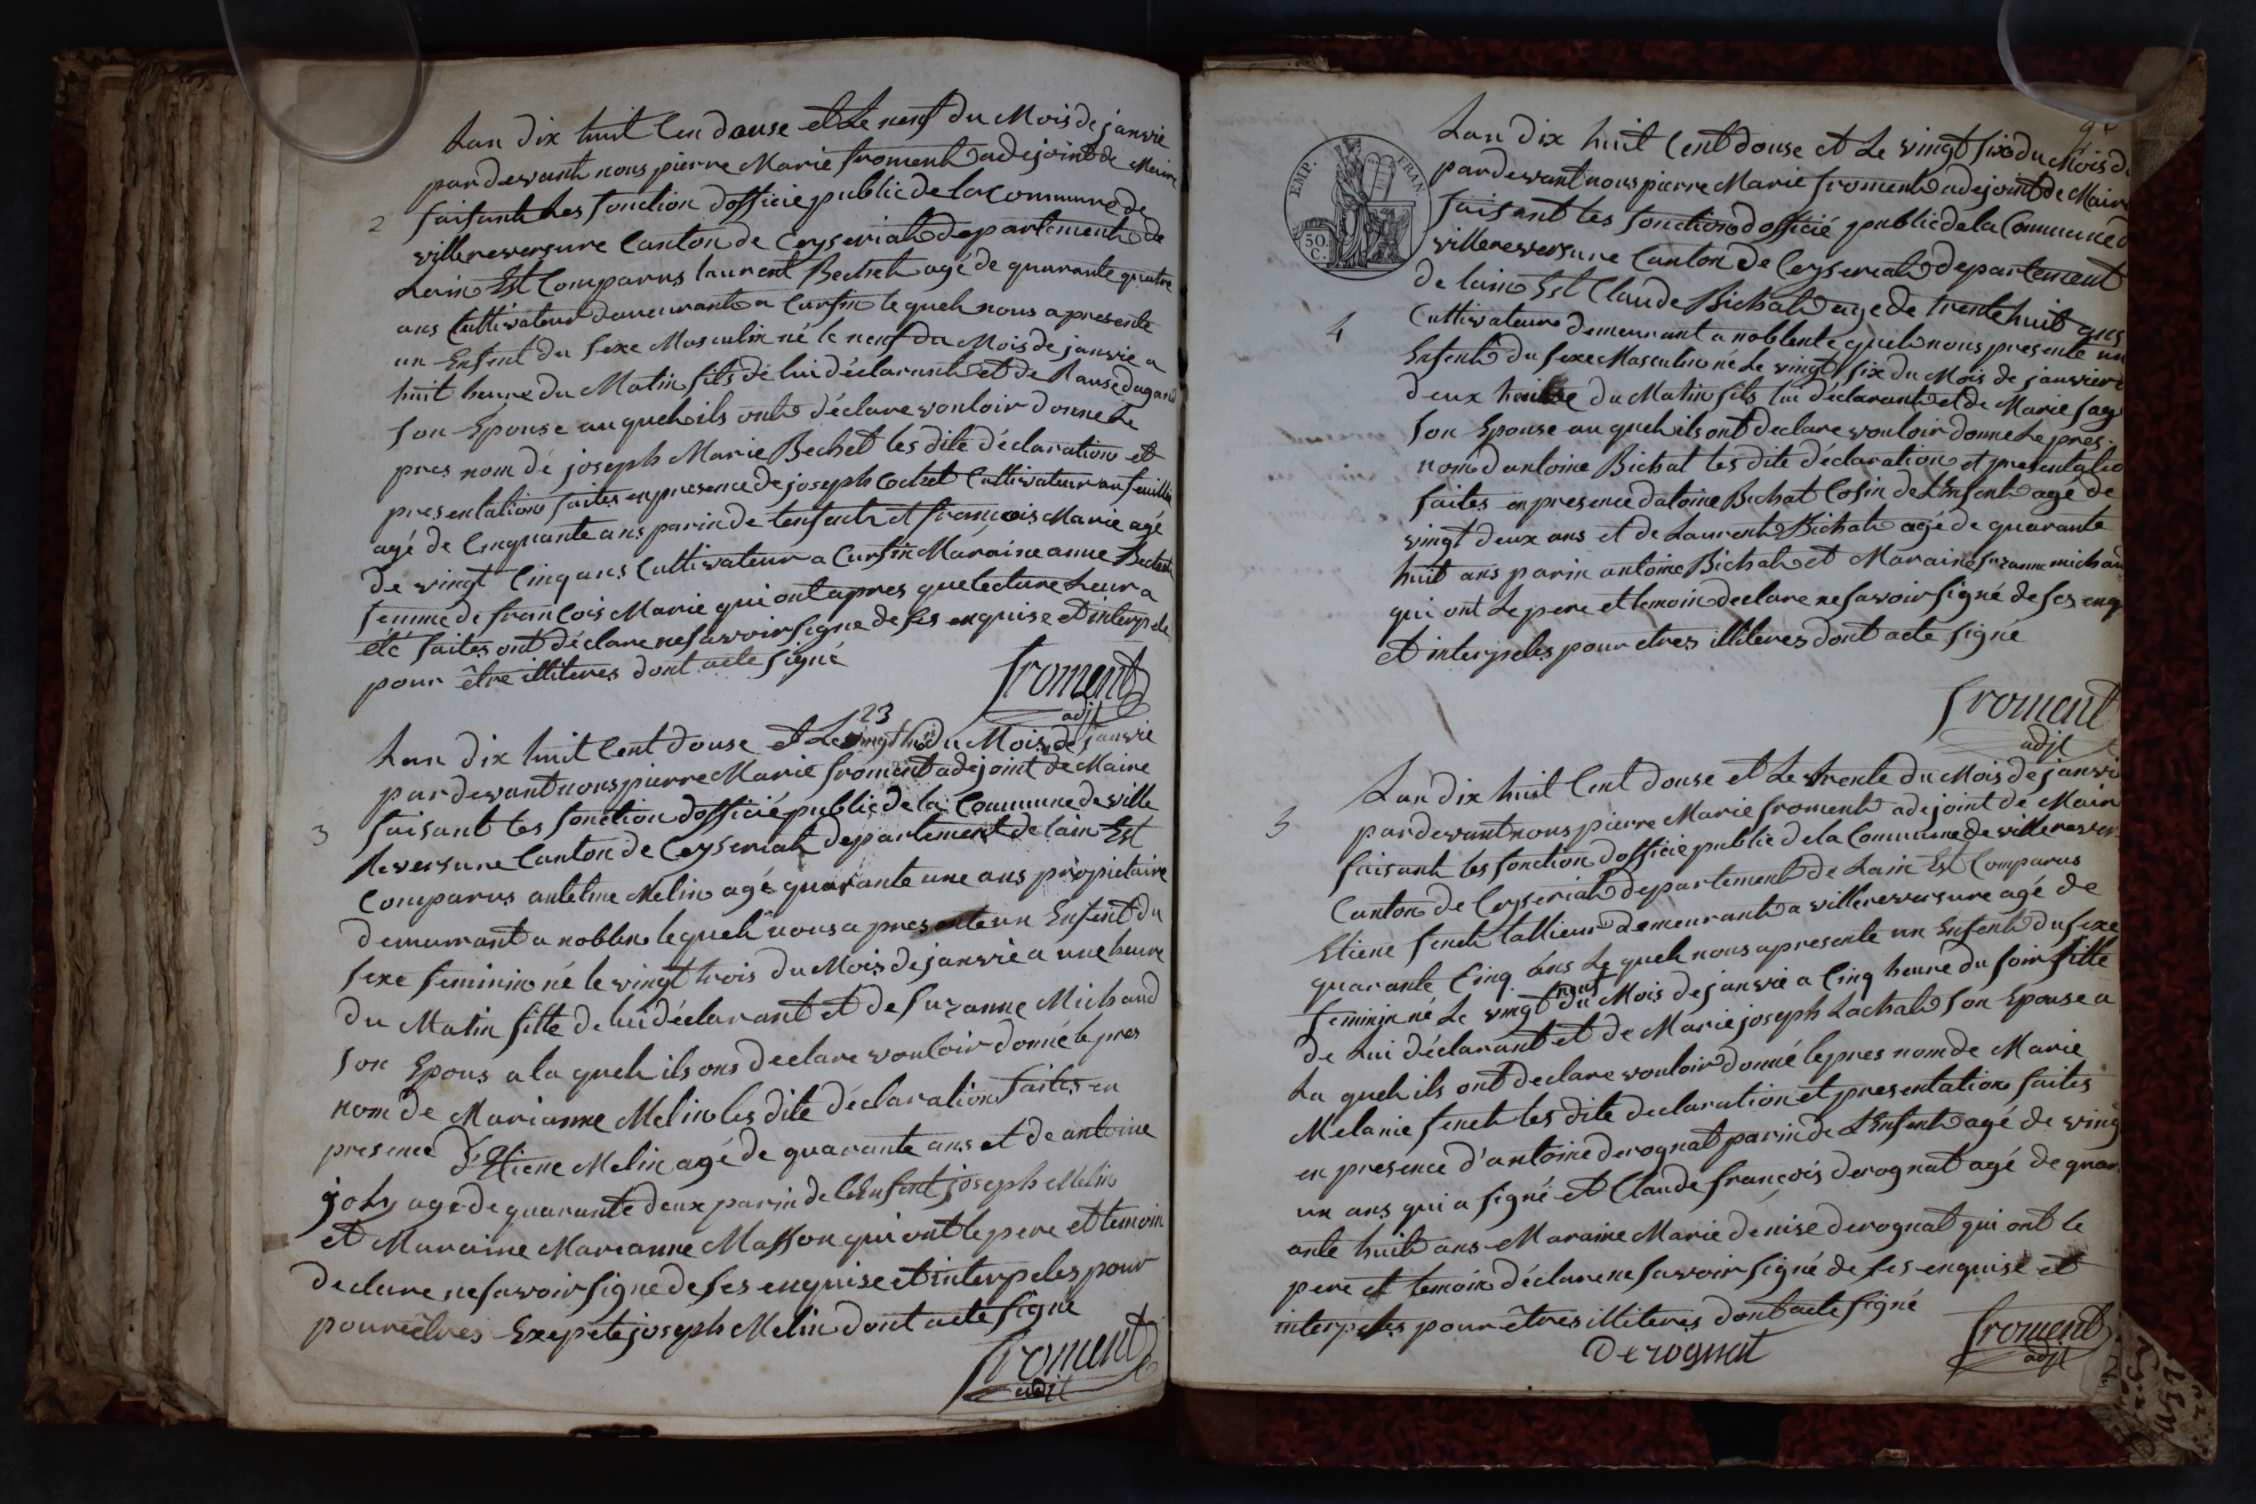 2
Lan dix huit Cen douse et Le neuf du Mois de janvie
pardevant nous pierre Marie froment adejoint de Maire
faisant Les fonction dofficie public de la Commune de
villereversure Canton de Ceyseriat departement de
Lain Est Comparus laurent Bechet agé de quarante quatre
ans Cultivateur demeurant a Cursin le queh nous a presente
un Enfent du sexe Masculin né le neuf du Mois de janvie a
huit heure du Matin fils de lui déclarant et de
son Epouse au queh ils ont déclare vouloir donne le
pres nom dé joseph Marie Bechet les dite déclaration et
presentation faites en presence de joseph Cochet Cultivateur
agé de Cinquante ans parin de lenfent et françois Marie agé
de vingt Cinq ans Cultivateur a Cursin Maraine anne Bechet
femme de françois Marie qui ont apres que lecture Leur a
été faites ont déclare ne savoir signe de ses enquise et interpele
pour être illiteres dont acte signé
froment
adjt
3
Lan dix huit Cent douse et Le vingt trois du Mois de janvie
23
pardevant nous pierre Marie froment adejoint de Maire
faisant les fonction dofficié public de la Commune de ville
Reversure Canton de Ceyseriat departement de lain Est
Comparus antelme Melin agé quarante une ans propietaire
demurant a noblen le queh nous a presente un Enfent du
sexe feminin né le vingt trois du Mois de janvie a une heure
du Matin fille de lui déclarant et de Suzanne Michaud
son Epous a la queh ils ons declare vouloir donné le pres
nom de Marianne Melin les dite déclaration faites en
presence d'Etiene Melin agé de quarante ans et de antoine
joly agé de quarante deux parin de lEnfent joseph Melin
et Maraine Marianne Masson qui ont le pere et temoin
declare ne savoir signe de ses enquise et interpeles pour
pour êtres Exepté joseph Melin dont acte signe
froment
adjt
4
Lan dix huit Cent douse et Le vingt six du Mois d
pardevant nous pierre Marie froment adejoint de Maire
faisant les fonction dofficié public de la Commune d
villereversure Canton de Ceyseriat departement
de lain Est Claude Bichat agé de trente huit ans
Cultivateur demeurant a noblent le queh nous presente un
Enfent du sexe Masculin né Le vingt six du Mois de janvier a
deux du Matin fils lui déclarant et de Marie
son Epouse au queh ils ont declare vouloir donne Le pres
nom dantoine Bichat les dite déclaration et presentatio
faites en presence datoine Bichat Cosin de LEnfent agé de
vingt deux ans et de Laurent Bichat agé de quarante
huit ans parin antoine Bichat et Maraine suzanne michau
qui ont Le pere et temoin declare ne savoir signé de ses enq
et interpeles pour etres illiteres dont acte signé
froment
adjt
5
Lan dix huit Cent douse et Le trente du Mois de janvi
pardevant nous pierre Marie froment adejoint de Mair
faisant les fonction dofficie public de la Commune de villerever
Canton de Ceyseriat departement de Lain Est Comparus
Etiene fenet tallieur Demeurant a villereversure agé de
quarante Cinq ans Le queh nous a presente un Enfent du sexe
feminin né Le vingt neuf du Mois de janvie a Cinq heure du soir fille
de Lui déclarant et de Marie joseph Lachat son Epouse a
La queh ils ont declare vouloir donné le pres nom de Marie
Melanie fenet les dite declaration et presentation faites
en presence d'antoine derognat parin de LEnfent agé de ving
un ans qui a signé et Claude françois derognat agé de quar
ante huit ans Maraine Marie denise derognat qui ont le
pere et temoin déclare ne savoir signé de ses enquise et
interpeles pour êtres illiteres dont acte signé
derognat
froment
adjt
EMP. FRAN
50
C.